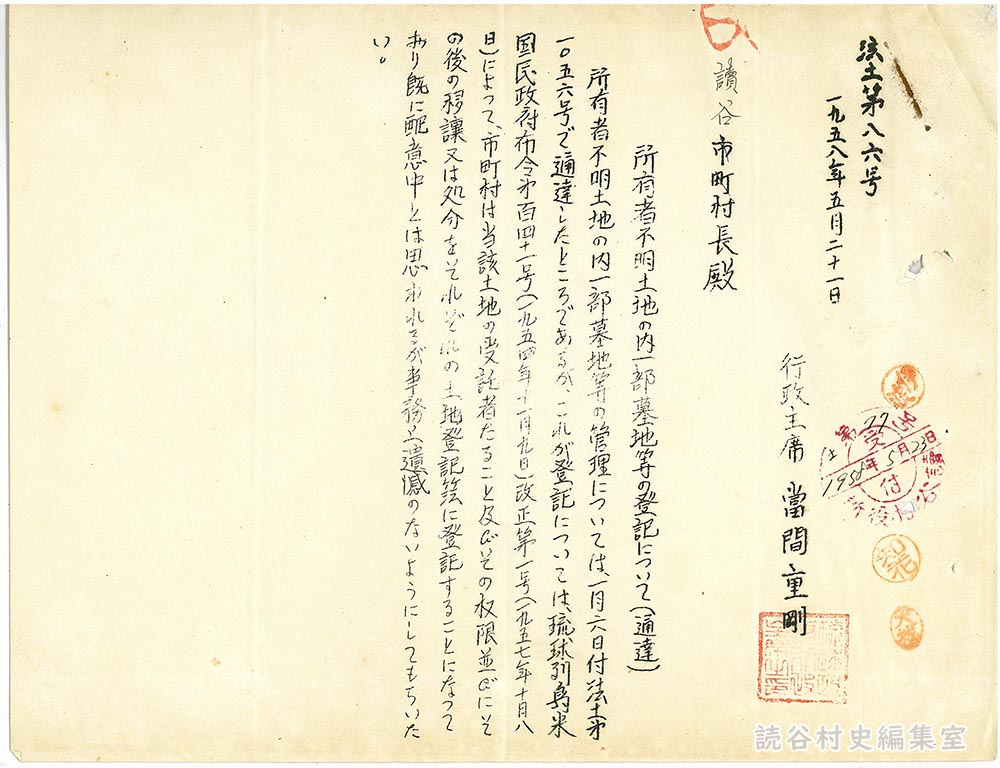 法土第八六号
一九五八年五月二十一日
行政主席 當間重剛
讀谷市町村長殿
所有者不明土地の内一部墓地等の登記について(通達)
所有者不明土地の内一部墓地等の管理については、一月六日付法土第
一〇五六号で通達したところであるが、これが登記については、琉球列島米
国民政府布令第百四十一号(一九五四年十一月九日)改正第一号(一九五七年十月八
日)によって、市町村は当該土地の受託者たること及びその权限並びにそ
の後の移讓又は処分をそれぞれの土地登記簿に登記することになって
あり既に配意中とは思われるが事務上遺憾のないようにしてもらいた
い。
受付
1958年5月23日
讀谷村役所
読谷村史編集室